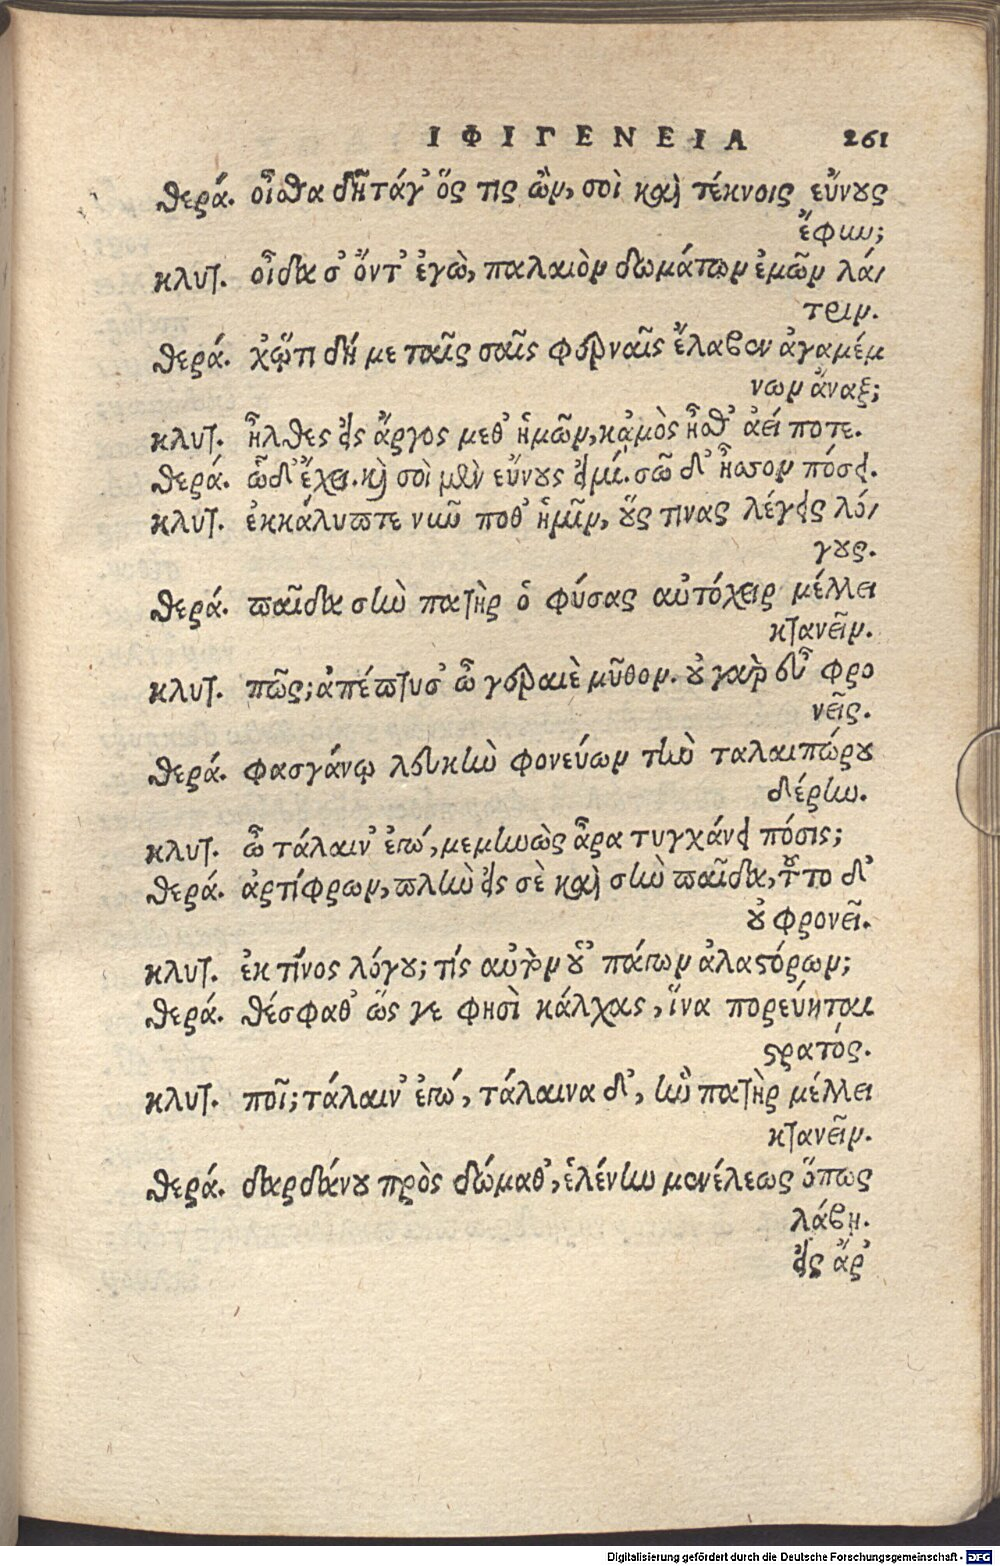 ΙΦΙΓΕΝΕΙΑ 261
θερά. οἶσθα δῆτάγ' ὅς τις ὢν, σοὶ καὶ τέκνοις εὔνους
ἔφυν;
κλυτ. οἶδα σ' ὄντ' ἐγὼ, παλαιὸν δωμάτων ἐμῶν λά/
τριν.
θερά. χᾤτι δή με ταῖς σαῖς φερναῖς ἔλαβον ἀγαμέμ
νων ἄναξ;
κλυτ. ἦλθες εἰς ἄργος μεθ' ἡμῶν, κἀμὸς ἦσθ' ἀεί ποτε.
θερά. ὧδ' ἔχει. καὶ σοὶ μὲν εὔνους εἰμί. σῶ δ' ἧσσον πόσει.
κλυτ. ἐκκάλυπτε νῦν ποθ' ἡμῖν, οὕς τινας λέγεις λό/
γους.
θερά. παῖδα σὴν πατὴρ ὁ φύσας αὐτόχειρ μέλλει
κτανεῖν.
κλυτ. πῶς; ἀπέπτυσ' ὦ γεραιὲ μῦθον. οὐ γὰρ εὖ φρο
νεῖς.
θερά. φασγάνῳ λευκὴν φονεύων τὴν ταλαιπώρου
δέρην.
κλυτ. ὦ τάλαιν' ἐγώ, μεμηνὼς ἆρα τυγχάνει πόσις;
θερά. ἀρτίφρων, πλὴν εἰς σὲ καὶ σὴν παῖδα, τοῦτο δ'
οὐ φρονεῖ.
κλυτ. ἐκ τίνος λόγου; τίς αὐτὸν οὑπάγων ἀλαστόρων;
θερά. θέσφαθ' ὥς γε φησὶ κάλχας, ἵνα πορεύηται
στρατός.
κλυτ. ποῖ; τάλαιν' ἐγώ, τάλαινα δ', ἣν πατὴρ μέλλει
κτανεῖν.
θερά. δαρδάνου πρὸς δώμαθ', ἑλένην μενέλεως ὅπως
λάβῃ.
εἰς ἄρ'
Digitalisierung gefördert durch die Deutsche Forschungsgemeinschaft - DFG